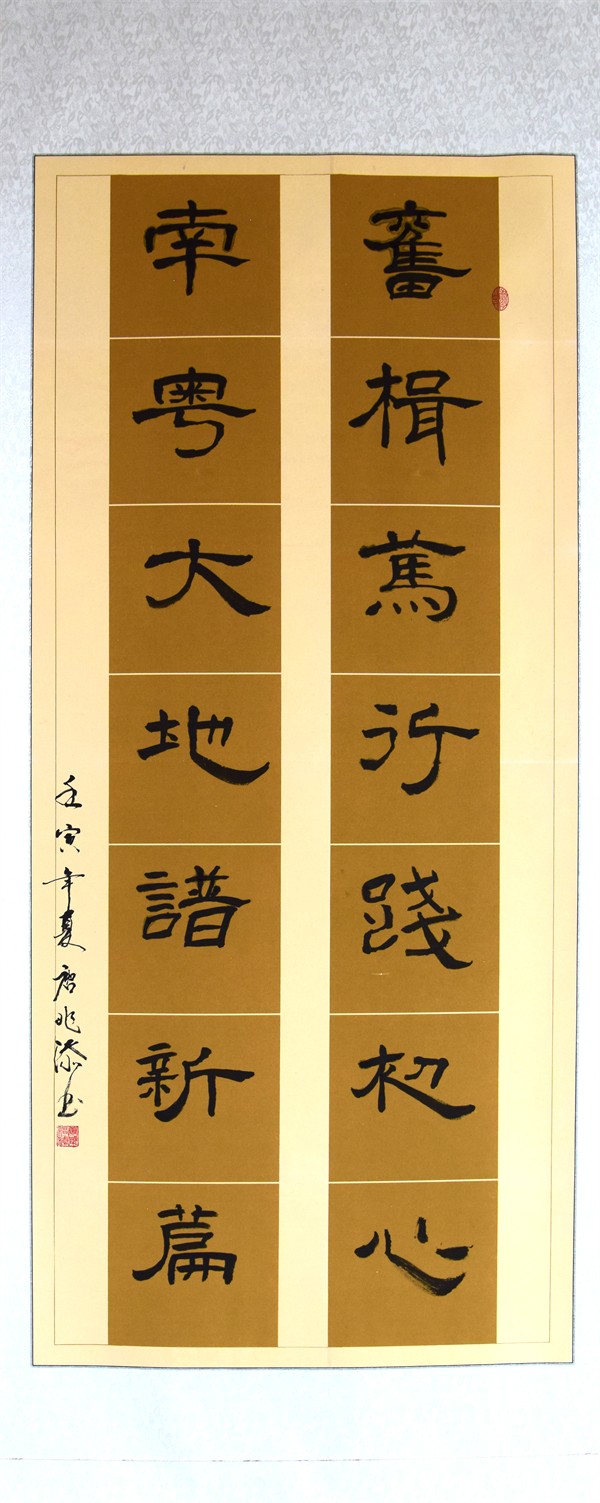 奮楫篤行踐初心
南粵大地譜新篇
壬寅年夏唐兆添书